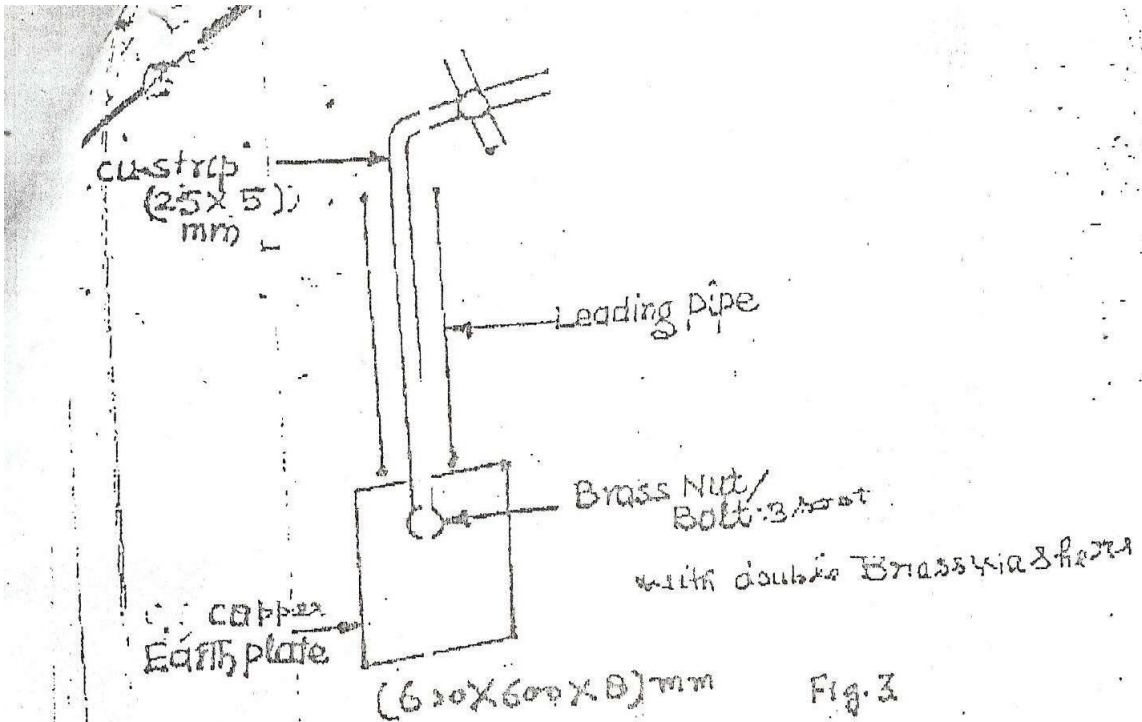 cu-strip
(25 x 5)
mm
Leading pipe
Brass Nut/
Bolt
with double Brass
copper
Earth plate
(600x600x8)mm
Fig. 3